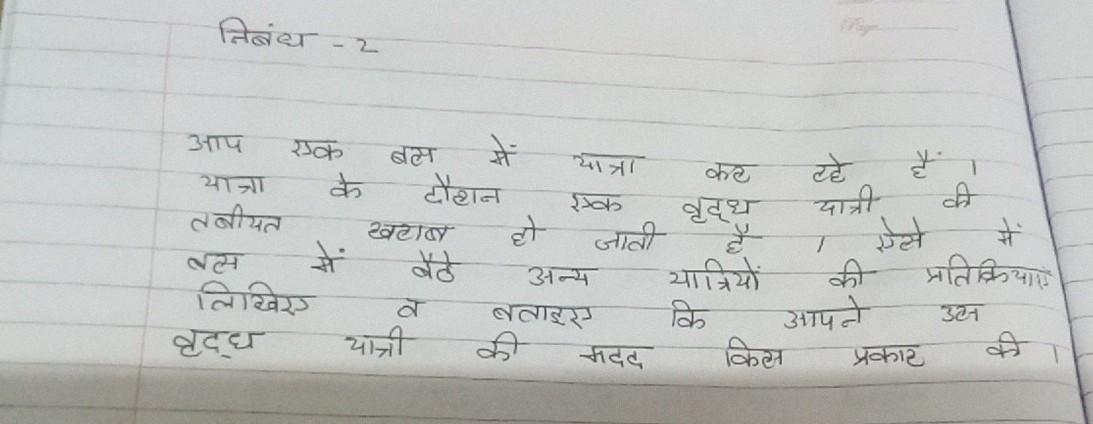 निबंध - 2
आप एक बस में यात्रा कर रहे हैं ।
यात्रा के दौरान एक वृद्ध यात्री की
तबीयत खराब हो जाती है । ऐसे में
बस में बैठे अन्य यात्रियों की प्रतिक्रियाएं
लिखिए व बताइए कि आपने उस
वृद्ध यात्री की मदद किस प्रकार की ।